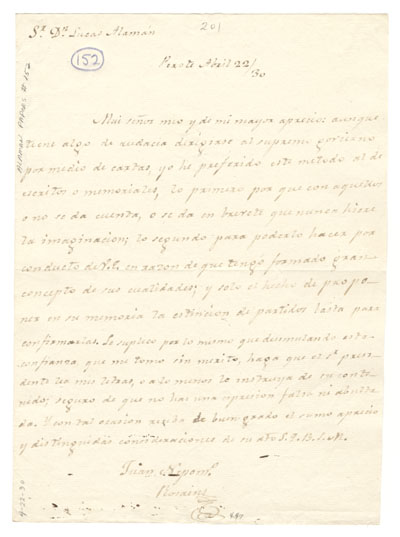 Sr. Dn. Lucas Alamán
201
152
Perote Abril 22/30
ALAMAN PAPERS # 152
Mui señor mio y de mi mayor aprecio: aunque
tiene algo de audacia dirigirse al supremo gobierno
por medio de cartas, yo he preferido este metodo al de
escritos o memoriales, lo primero por que con aquellos
o no se da cuenta, o se da en brevete que nunca hiere
la imaginacion; lo segundo para poderlo hacer por
conducto de V.E. en razon de que tengo formado gran
concepto de sus cualidades; y solo el hecho de propo
ner en su memoria la estincion de partidos basta para
confirmarlas. Le suplico por lo mismo que disimulando esta
confianza, que me tomo sin merito, haga que el Sr. presi
dente lea mis letras, o a lo menos lo instruya de su conte
nido; seguro de que no hai una espresion falsa ni
da. Y con tal ocasion reciba de buen grado el sumo aprecio
y distinguidas consideraciones de su ato S. Q. B. S. M.
Juan Nepom.
Rosains
4-22-30